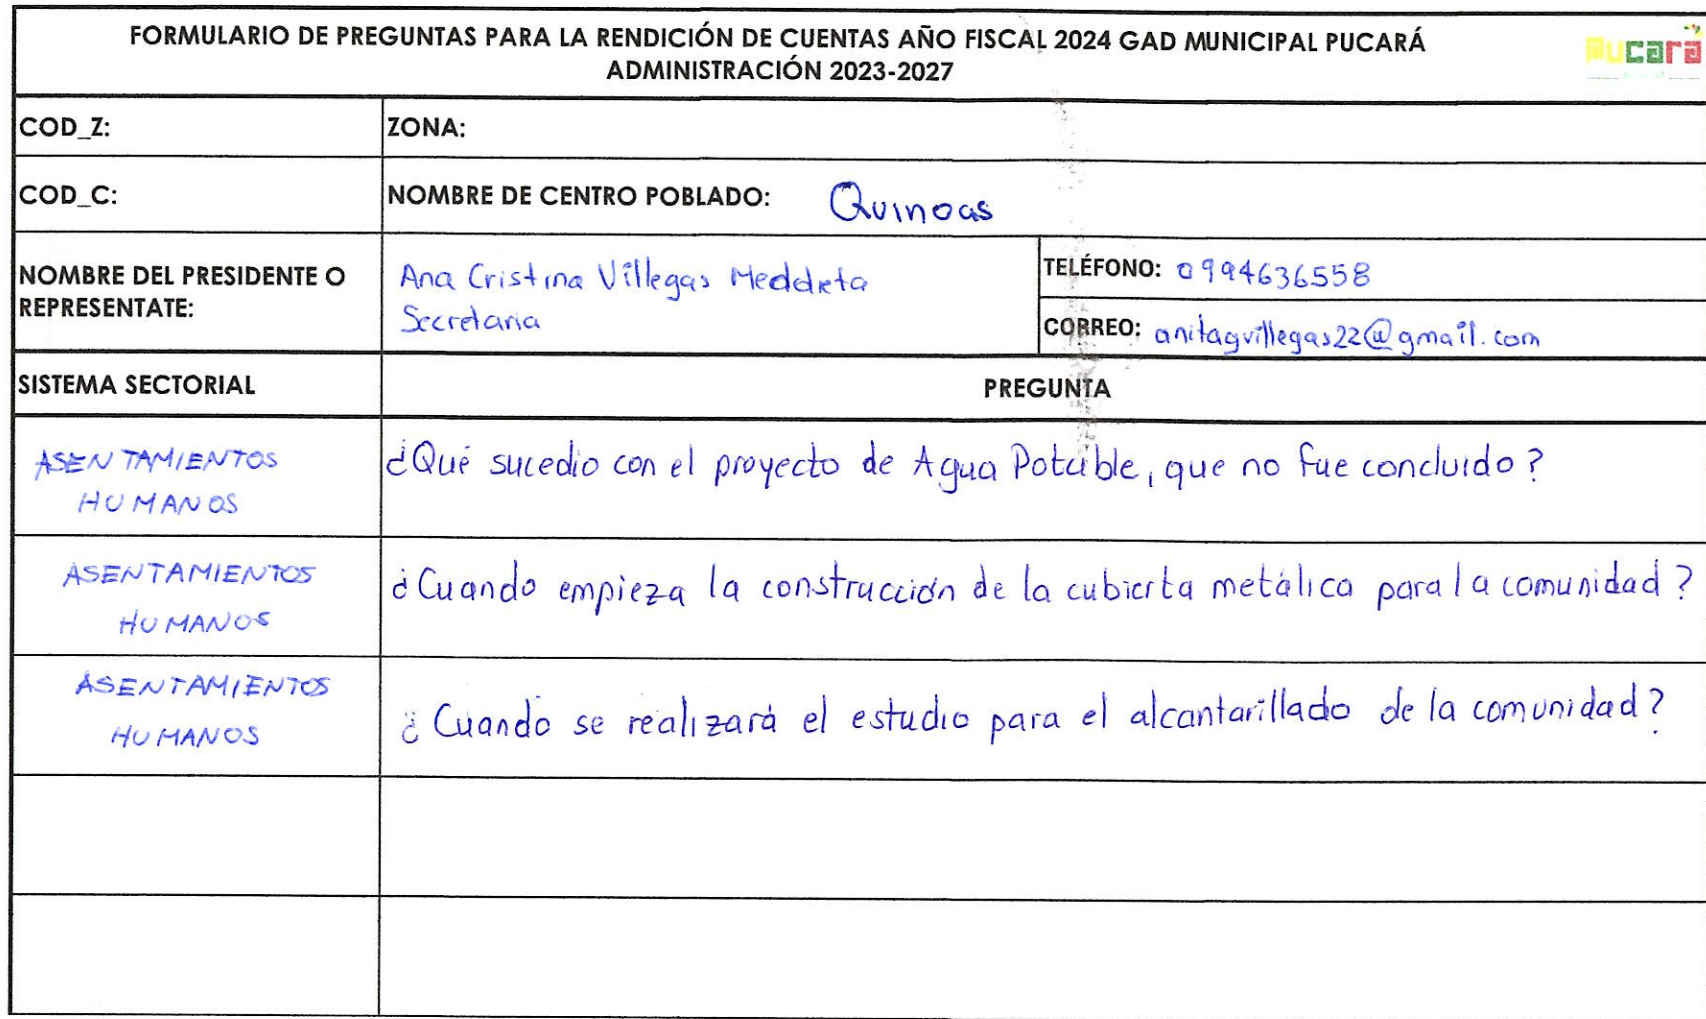 FORMULARIO DE PREGUNTAS PARA LA RENDICIÓN DE CUENTAS AÑO FISCAL 2024 GAD MUNICIPAL PUCARÁ
ADMINISTRACIÓN 2023-2027
Pucará
COD_Z:
ZONA:
COD_C:
NOMBRE DE CENTRO POBLADO: Quinoas
NOMBRE DEL PRESIDENTE O
REPRESENTATE:
Ana Cristina Villegas Meddieta
Secretaria
TELÉFONO: 0994636558
CORREO: anitagvillegas22@gmail.com
SISTEMA SECTORIAL
PREGUNTA
ASENTAMIENTOS
HUMANOS
¿Qué sucedio con el proyecto de Agua Potable, que no fue concluido?
ASENTAMIENTOS
HUMANOS
¿Cuando empieza la construcción de la cubierta metálica para la comunidad?
ASENTAMIENTOS
HUMANOS
¿Cuando se realizará el estudio para el alcantarillado de la comunidad?